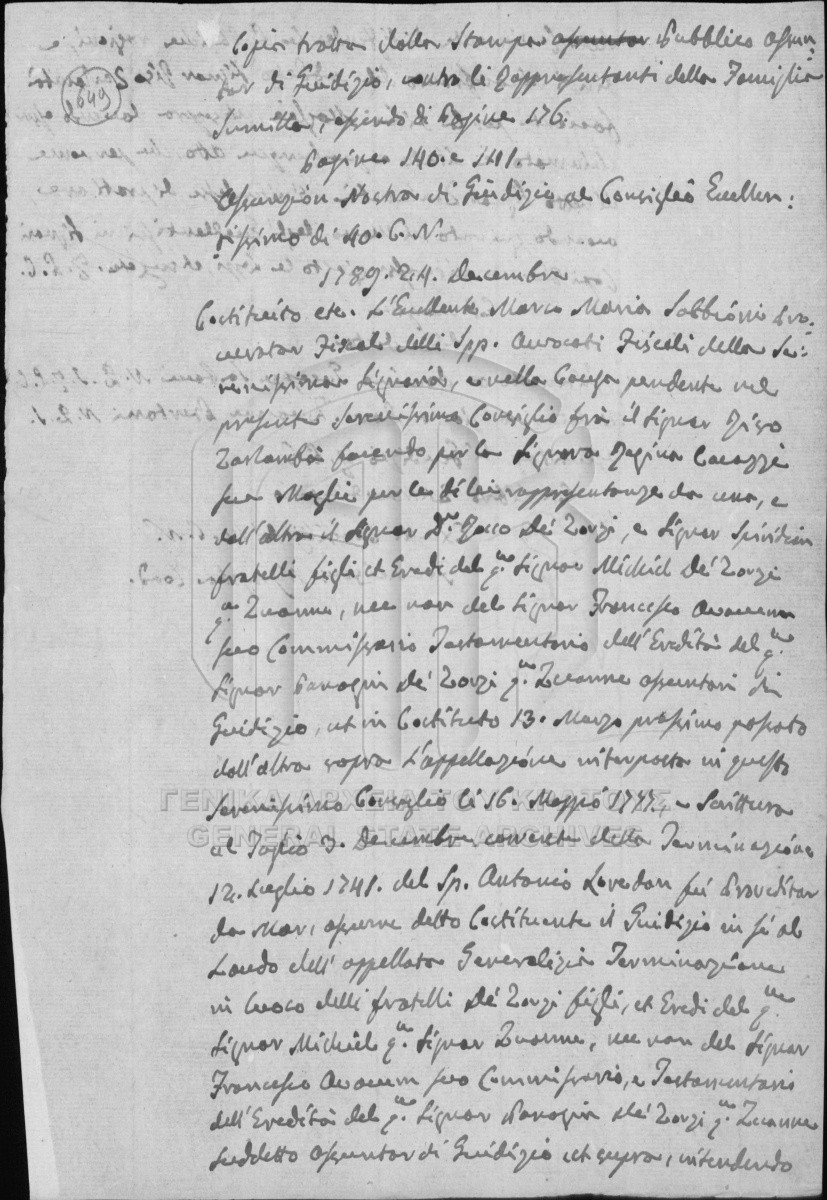 649
Copia tratta dalla Stampa assuntor Pubblico assun:
tor di Giudizio, contro li Rappresentanti della Famiglia
Sumilla, essendo di Pagine 176.
Pagine 140. e 141.
Assunzion Nostra di Giudizio al Consiglio Eccellen:
tissimo di 40. C. N.
1789. 24. Decembre
Costituito etc. L'Eccellente Marco Maria Sabbioni Pro:
curator Fiscal delli Spp. Avocati Fiscali della Se:
renissima Signoria, e nella Causa pendente nel
presente Serenissimo Consiglio frà il Signor
facendo per la Signora Regina
sua Moglie per le di lei rappresentanze da una, e
dall'altra il Signor Dr. Rocco De' Zorzi, e Signor Spiridion
fratelli figli et Eredi del qm. Signor Michiel De' Zorzi
qm. Zuanne, nec non del Signor Francesco
suo Commissario Testamentario dell'Eredità del qm.
Signor Panagin De' Zorzi qm. Zuanne assuntori di
Giudizio, ut in Costituto 13. Marzo prossimo passato
dall'altra sopra l'appellazione interposta in questo
Serenissimo Consiglio li 16. Maggio 1747., e Scrittura
al Taglio 3. Decembre corrente della Terminazione
12. Luglio 1741. del Sp. Antonio Loredan fù Proveditor
da Mar, assume detto Costituente il Giudizio in sé al
Laudo dell'appellata Generalizia Terminazione
in luoco delli fratelli De' Zorzi figli, et Eredi del qm.
Signor Michiel qm. Signor Zuanne, nec non del Signor
Francesco suo Commissario, e Testamentario
dell'Eredità del qm. Signor Panagin De' Zorzi qm. Zuanne
suddetto assuntor di Giudizio ut supra, intendendo
ΓΕΝΙΚΑ ΑΡΧΕΙΑ ΤΟΥ ΚΡΑΤΟΥΣ
GENERAL STATE ARCHIVES